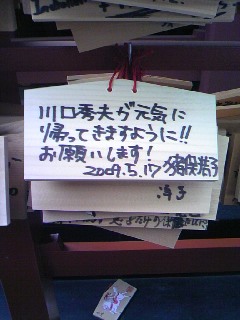 川口秀夫が元気に
帰ってきますように!!
お願いします!
2009.5.17 猪俣浩子